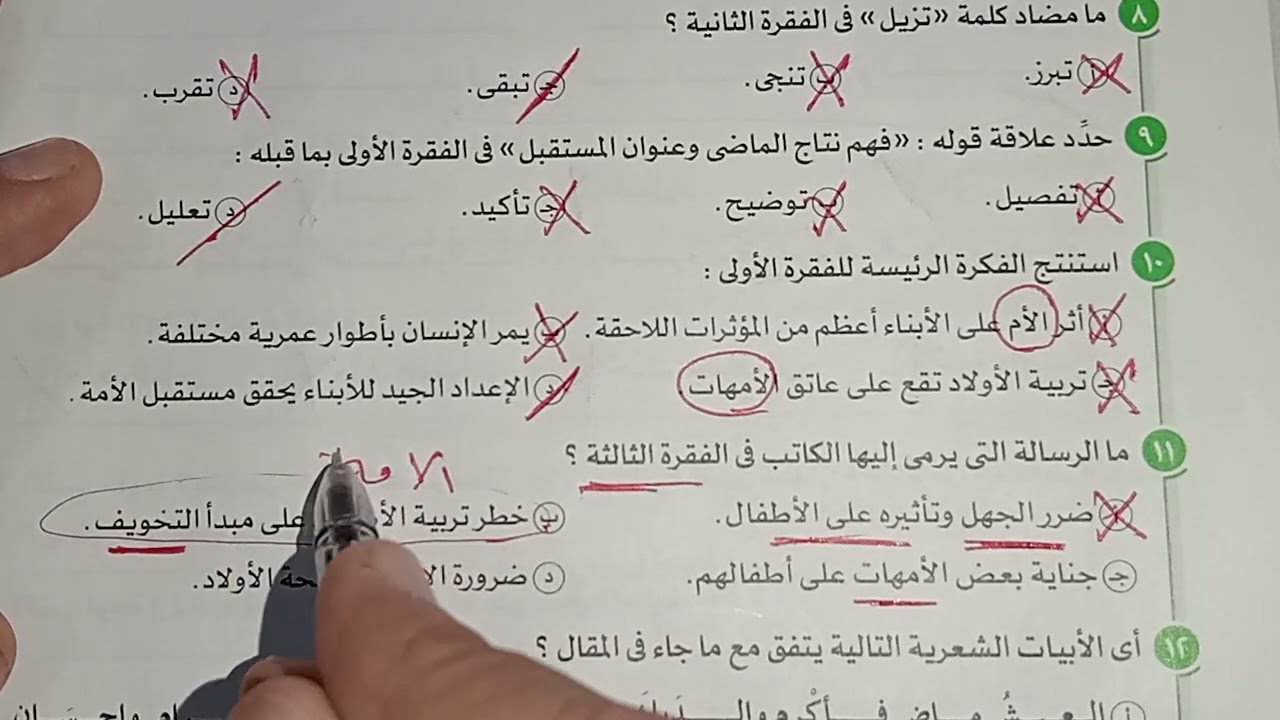 ٨ ما مضاد كلمة «تزيل» فى الفقرة الثانية ؟
أ تبرز. ب تنجى. جـ تبقى. د تقرب.
٩ حدِّد علاقة قوله : «فهم نتاج الماضى وعنوان المستقبل» فى الفقرة الأولى بما قبله :
أ تفصيل. ب توضيح. جـ تأكيد. د تعليل.
١٠ استنتج الفكرة الرئيسة للفقرة الأولى :
أ أثر الأم على الأبناء أعظم من المؤثرات اللاحقة. ب يمر الإنسان بأطوار عمرية مختلفة.
جـ تربية الأولاد تقع على عاتق الأمهات. د الإعداد الجيد للأبناء يحقق مستقبل الأمة.
١١ ما الرسالة التى يرمى إليها الكاتب فى الفقرة الثالثة ؟
أ ضرر الجهل وتأثيره على الأطفال. ب خطر تربية على مبدأ التخويف.
جـ جناية بعض الأمهات على أطفالهم. د ضرورة الأولاد.
١٢ أى الأبيات الشعرية التالية يتفق مع ما جاء فى المقال ؟